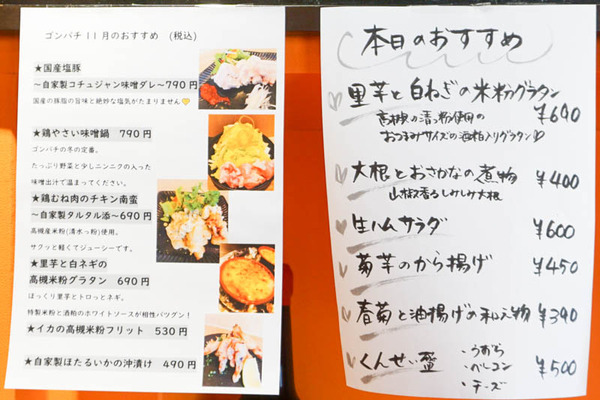 ゴンパチ11月のおすすめ (税込)
★国産塩豚
～自家製コチュジャン味噌ダレ～790円
国産の豚脂の旨味と絶妙な塩気がたまりません
★鶏やさい味噌鍋 790円
ゴンパチの冬の定番。
たっぷり野菜と少しニンニクの入った
味噌出汁で温まってください。
★鶏むね肉のチキン南蛮
～自家製タルタル添～690円
高槻産米粉(清水っ粉)使用。
サクッと軽くてジューシーです。
★里芋と白ネギの
高槻米粉グラタン 690円
ほっくり里芋とトロっとネギ。
特製米粉と酒粕のホワイトソースが相性バツグン！
★イカの高槻米粉フリット 530円
★自家製ほたるいかの沖漬け 490円
本日のおすすめ
里芋と白ねぎの米粉グラタン
高槻の清っ粉使用の
¥690
おつまみサイズの酒粕入りグラタン
大根とおさかなの煮物
¥400
山椒香るしみしみ大根
生ハムサラダ ¥600
菊芋のから揚げ ¥450
春菊と油揚げの和え物 ¥390
くんせい盛 ・うずら
・ベーコン ¥500
・チーズ